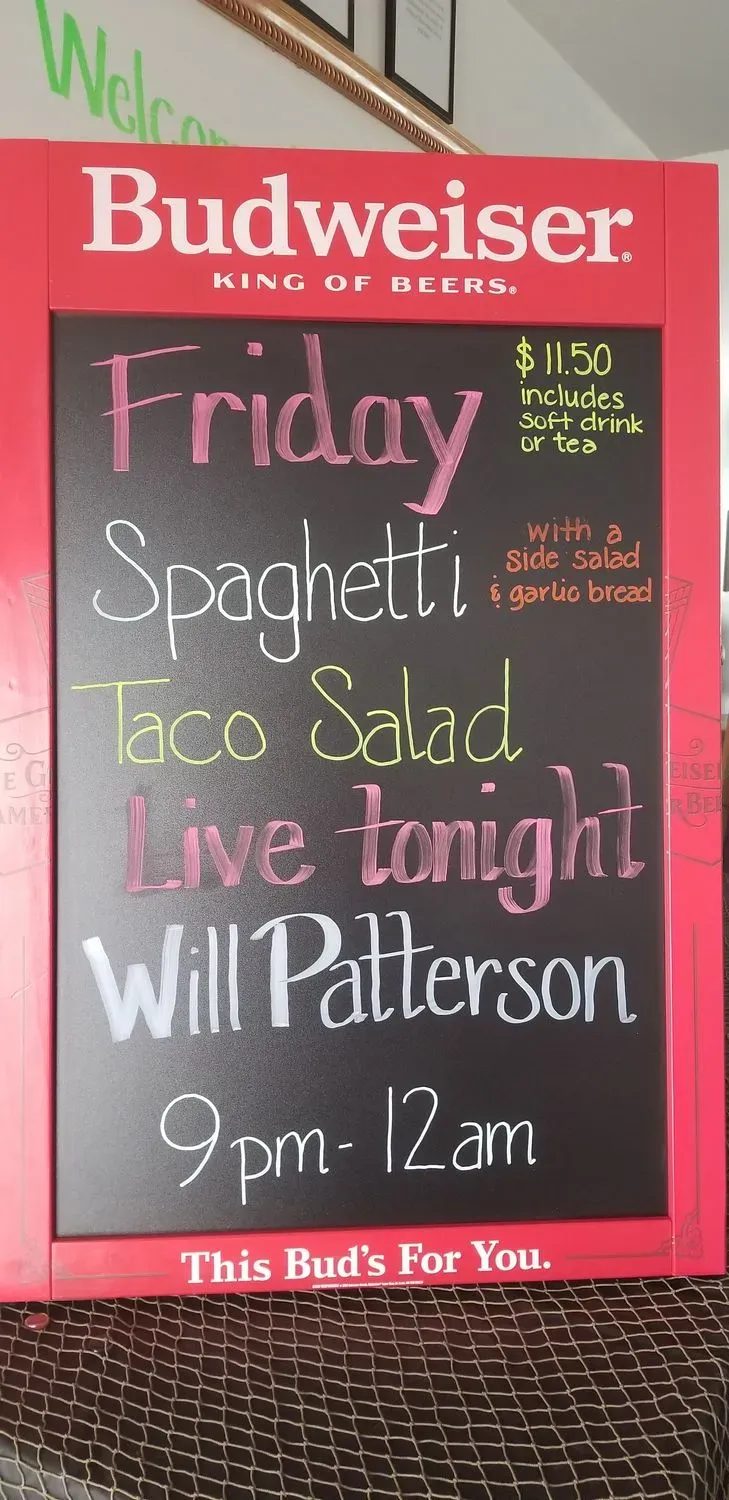 Welcom
Budweiser®
KING OF BEERS®
Friday
$11.50
includes
soft drink
or tea
Spaghetti
with a
side salad
& garlic bread
Taco Salad
Live tonight
Will Patterson
9pm-12am
This Bud's For You.